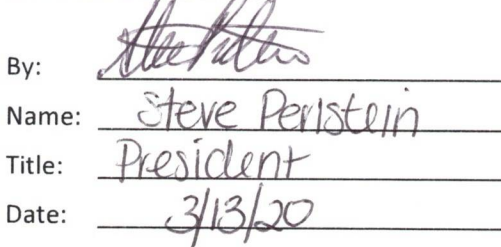 By:
Name: Steve Perlstein
Title: President
Date: 3/13/20